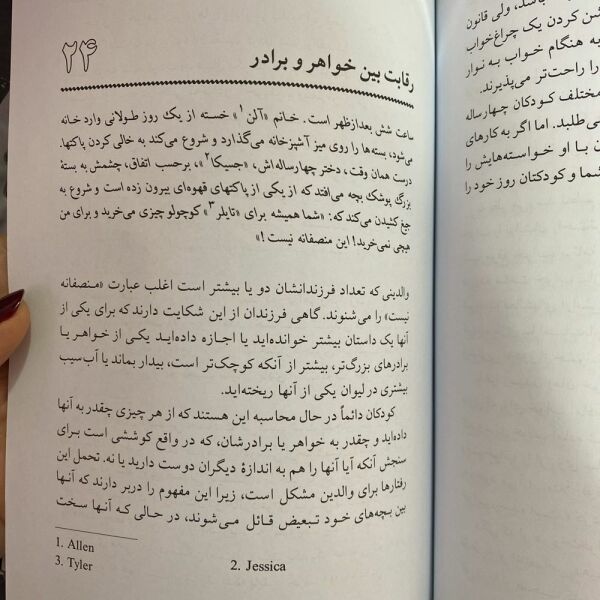 ۲۴
رقابت بین خواهر و برادر
ساعت شش بعدازظهر است. خانم «آلن۱» خسته از یک روز طولانی وارد خانه
می‌شود، بسته‌ها را روی میز آشپزخانه می‌گذارد و شروع می‌کند به خالی کردن پاکتها.
درست همان وقت، دختر چهارساله‌اش، «جسیکا۲»، برحسب اتفاق، چشمش به بستهٔ
بزرگ پوشک بچه می‌افتد که از یکی از پاکتهای قهوه‌ای بیرون زده است و شروع به
جیغ کشیدن می‌کند که: «شما همیشه برای «تایلر۳» کوچولو چیزی می‌خرید و برای من
هیچی نمی‌خرید! این منصفانه نیست!»
والدینی که تعداد فرزندانشان دو یا بیشتر است اغلب عبارت «منصفانه
نیست» را می‌شنوند. گاهی فرزندان از این شکایت دارند که برای یکی از
آنها یک داستان بیشتر خوانده‌اید یا اجازه داده‌اید یکی از خواهر یا
برادرهای بزرگ‌تر، بیشتر از آنکه کوچک‌تر است، بیدار بماند یا آب‌سیب
بیشتری در لیوان یکی از آنها ریخته‌اید.
کودکان دائماً در حال محاسبه این هستند که از هر چیزی چقدر به آنها
داده‌اید و چقدر به خواهر یا برادرشان، که در واقع کوششی است برای
سنجش آنکه آیا آنها را هم به اندازهٔ دیگران دوست دارید یا نه. تحمل این
رفتارها برای والدین مشکل است، زیرا این مفهوم را دربر دارند که آنها
بین بچه‌های خود تبعیض قائل می‌شوند، در حالی که آنها سخت
1. Allen
2. Jessica
3. Tyler
باشد، ولی قانون
شن کردن یک چراغ‌خواب
به هنگام خواب به نوار
را راحت‌تر می‌پذیرند.
مختلف کودکان چهارساله
می‌طلبد. اما اگر به کارهای
ن با او خواسته‌هایش را
شما و کودکتان روز خود را